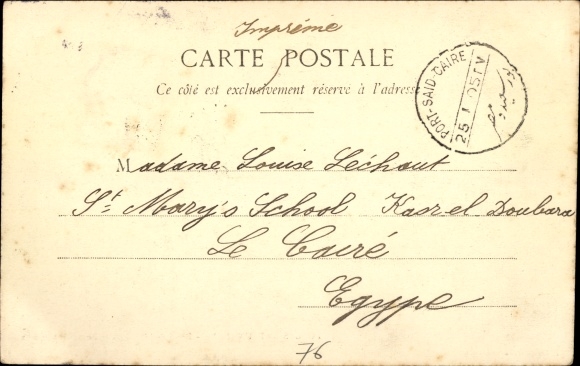 Impréme
CARTE POSTALE
Ce côté est exclusivement réservé à l'adresse
PORT-SAID-CAIRE
25 I 05
Madame Louise Léchaut
St Mary's School Kasr el Doubara
Le Cairé
Egype
76